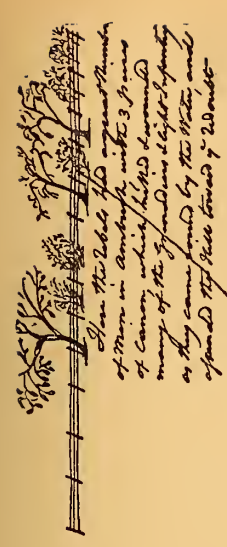 Here the Rebels had a great Number
of Men in Ambush with 3 pieces
of Canon, which kill'd & wounded
many of the Grenadiers & Light Infantry
as they came round by the Water, and
up the Hill toward ye Wood